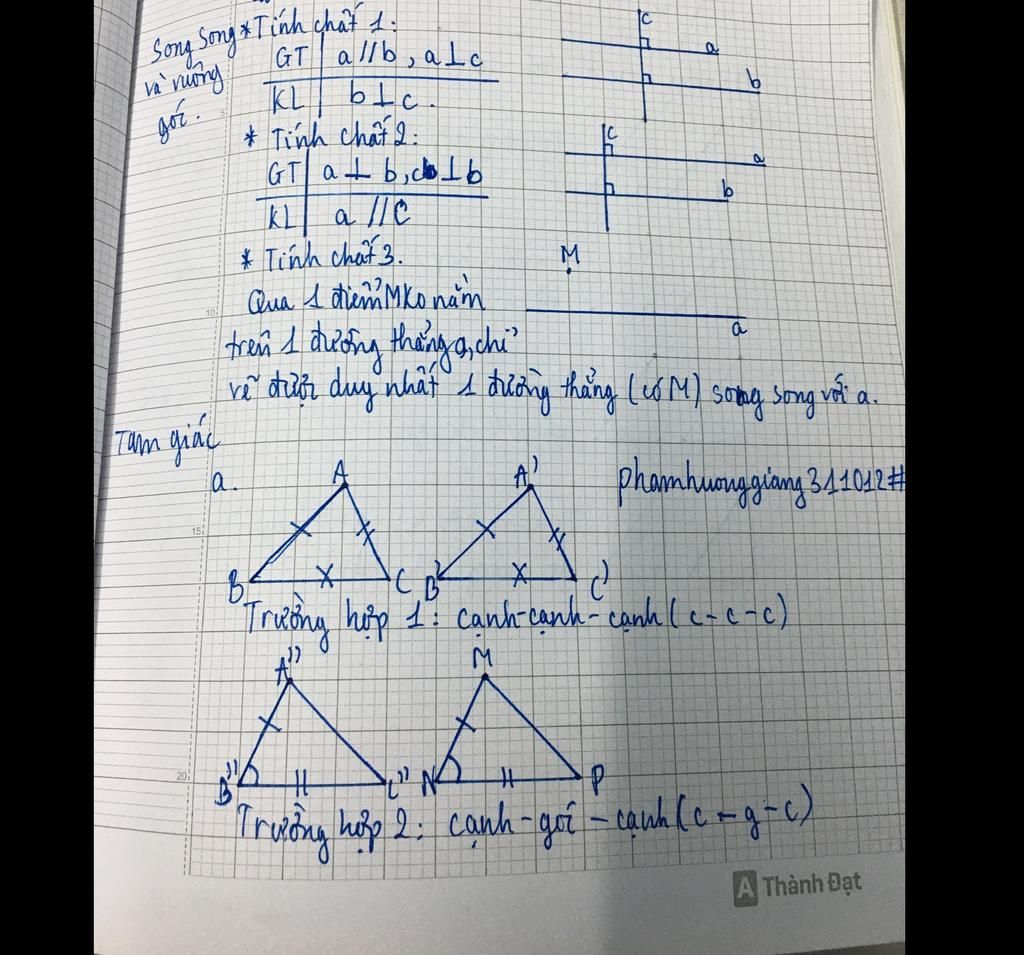 Song Song * Tính chất 1:
và vuông
góc.
GT a // b, a ⊥ c
KL b ⊥ c.
c
a
b
* Tính chất 2:
GT a ⊥ b, c ⊥ b
KL a // C
c
a
b
* Tính chất 3.
M
Qua 1 điểm M ko nằm
a
trên 1 đường thẳng a, chỉ
vẽ được duy nhất 1 đường thẳng (có M) song song với a.
Tam giác
a.
A
B
C
A'
B'
C'
phamhuonggiang311012#
15
Trường hợp 1: cạnh-cạnh-cạnh (c-c-c)
A''
B''
C''
M
N
P
20
Trường hợp 2: cạnh-gói-cạnh (c-g-c)
A Thành Đạt
5
10